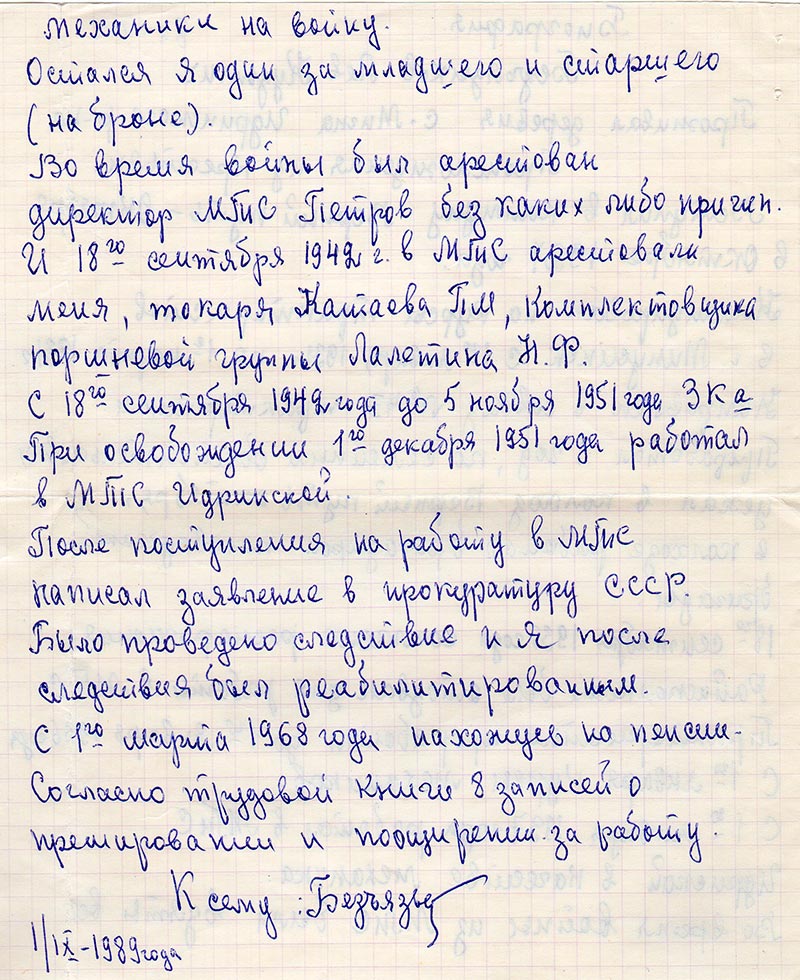 механики на войну.
Остался я один за младшего и старшего
(на броне).
Во время войны был арестован
директор МТС Петров без каких либо причин.
И 18го сентября 1942 г. в МТС арестовали
меня, токаря Катаева П М, Комплектовщика
поршневой группы Лалетина Н. Ф.
С 18го сентября 1942 года до 5 ноября 1951 года З К а
При освобождении 1го декабря 1951 года работал
в МТС Идринской.
После поступления на работу в МТС
написал заявление в прокуратуру СССР.
Было проведено следствие и я после
следствия был реабилитированным.
С 1го марта 1968 года нахожусь на пенсии.
Согласно трудовой книги 8 записей о
премировании и поощрении за работу.
К сему: Безъязы
1/IX-1989 года